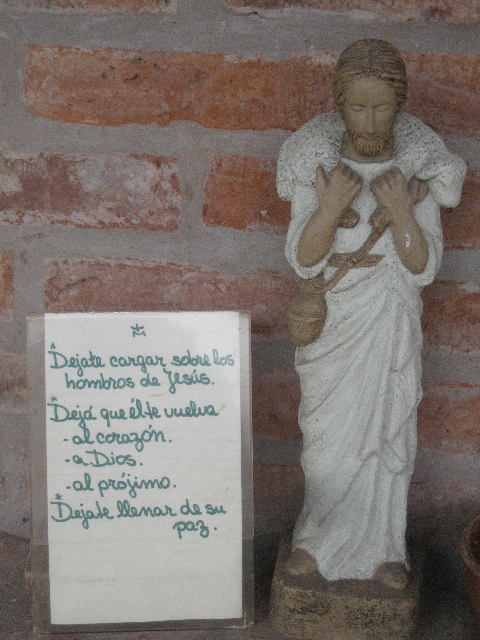 *Dejate cargar sobre los
hombros de Jesús.
*Dejá que él te vuelva
-al corazón.
-a Dios.
-al prójimo.
*Dejate llenar de su
paz.